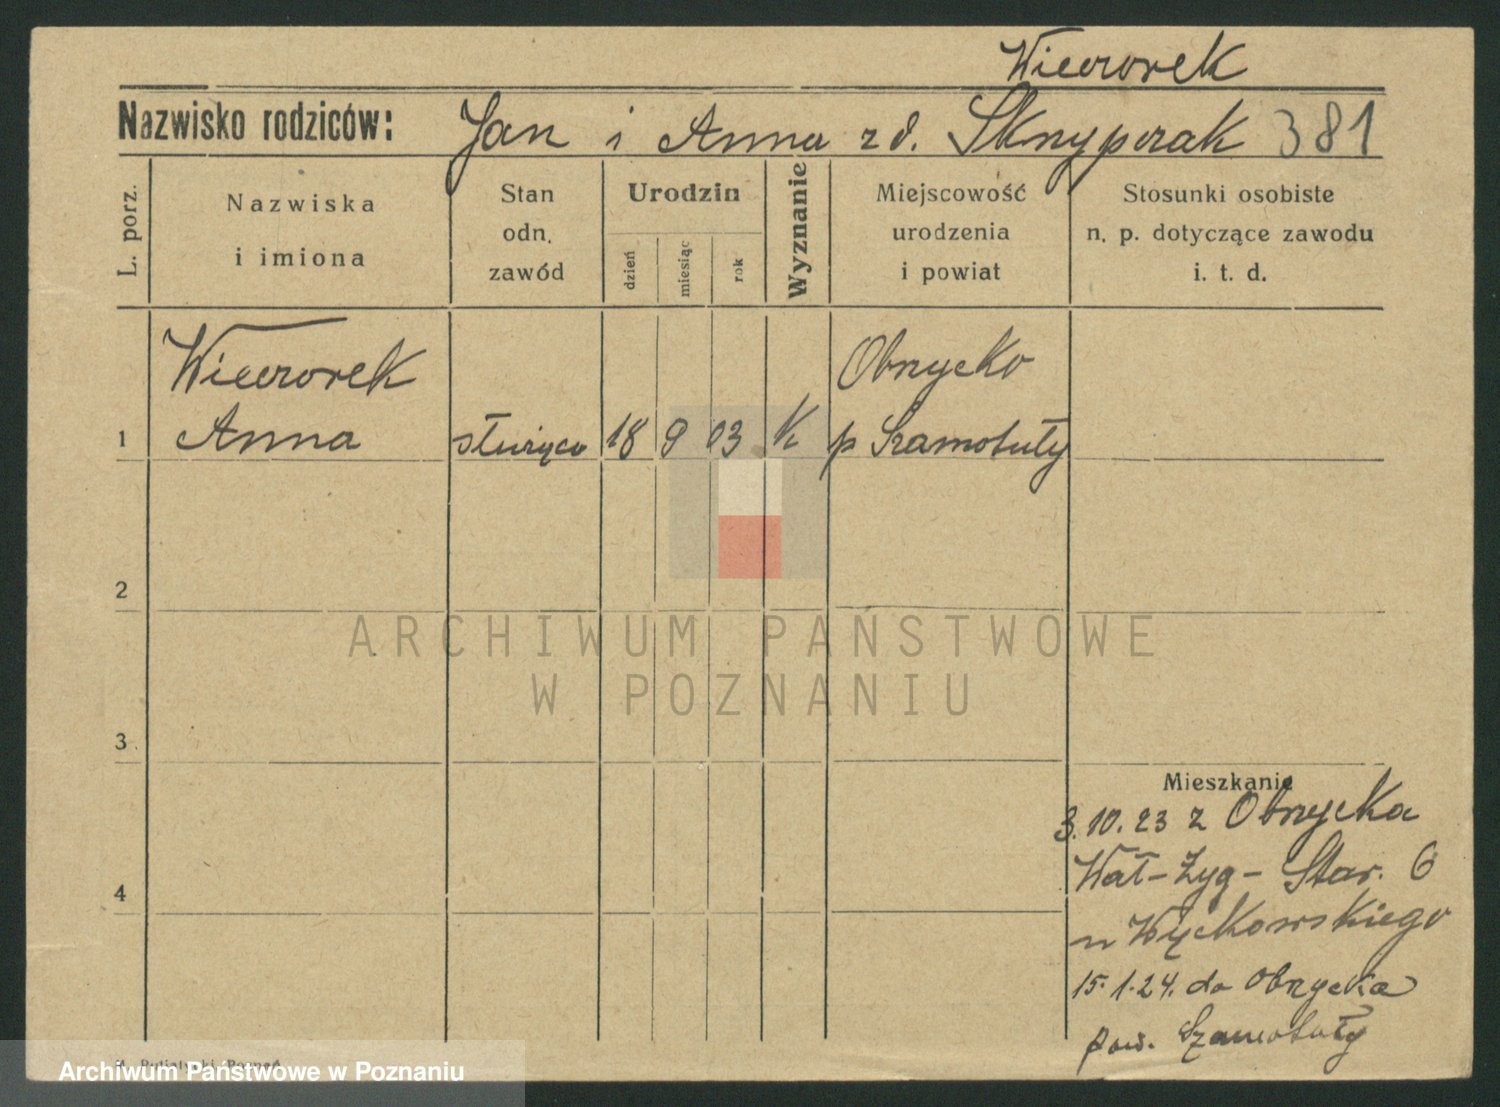 Wieczorek
Nazwisko rodziców: Jan i Anna zd. Skrzypczak 381
L. porz.
Nazwiska
i imiona
Stan
odn.
zawód
Urodzin
dzień
miesiąc
rok
Wyznanie
Miejscowość
urodzenia
i powiat
Stosunki osobiste
n. p. dotyczące zawodu
i. t. d.
Wieczorek Obrzycko
1 Anna służąca 18 9 03 K p Szamotuły
2
ARCHIWUM PAŃSTWOWE
W POZNANIU
3
Mieszkanie
3.10.23 z Obrzycka
4
Wał-Zyg- Star. 6
u
15.1.24. do Obrzycka
pow. Szamotuły
Poznań
Archiwum Państwowe w Poznaniu